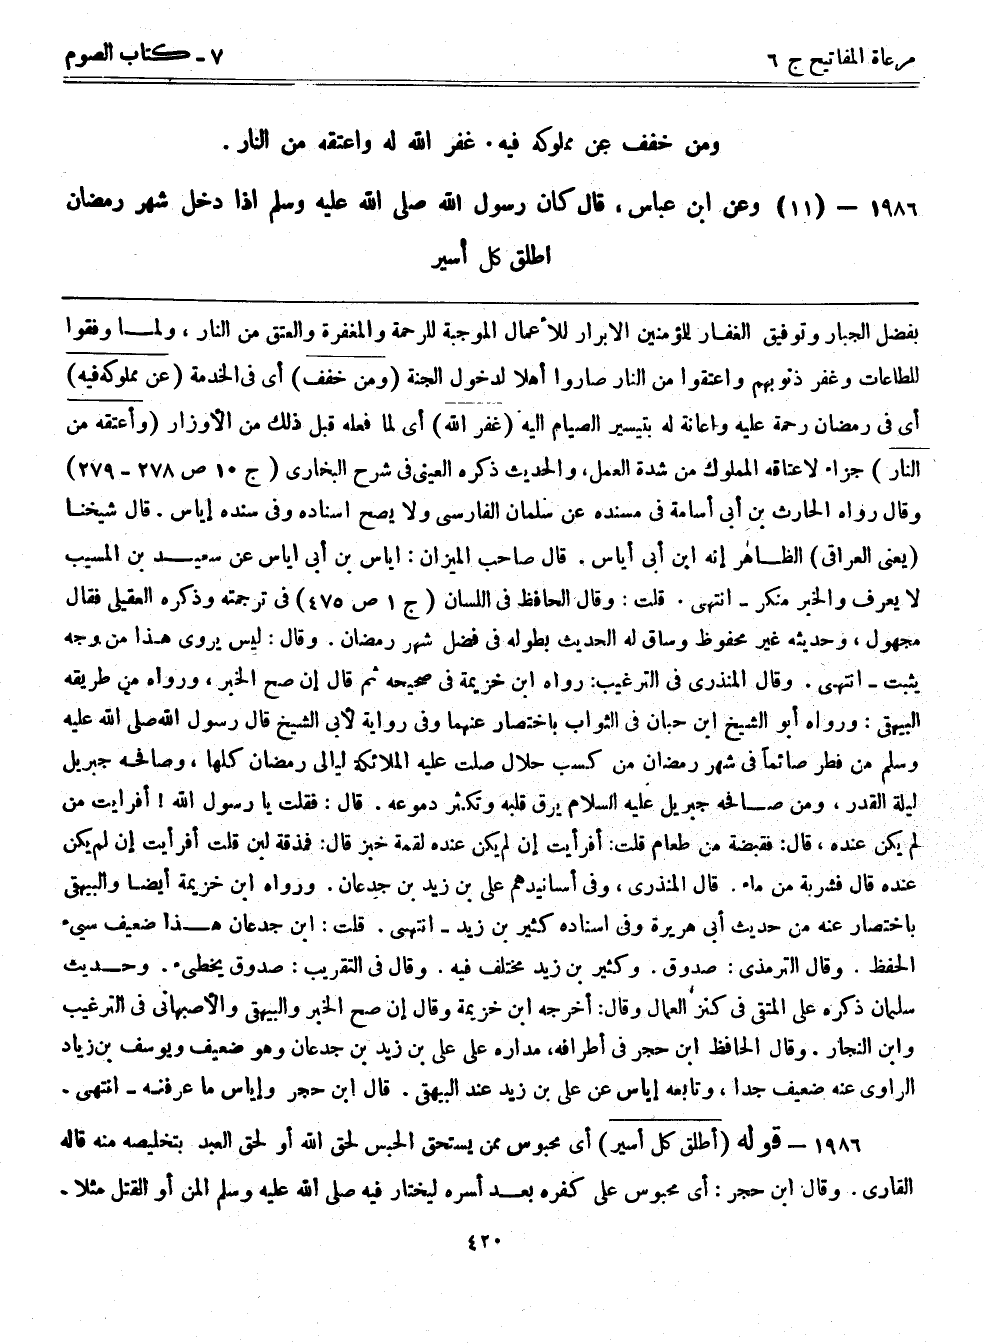 مرعاة المفاتيح ج ٦
٧ ـ كتاب الصوم
ومن خفف عن مملوكه فيه ٠ غفر الله له واعتقه من النار .
١٩٨٦ – (١١) وعن ابن عباس ، قال كان رسول الله صلى الله عليه وسلم اذا دخل شهر رمضان
اطلق كل أسير
بفضل الجبار وتوفيق الغفار للؤمنين الابرار للأعمال الموجبة للرحمة والمغفرة والعتق من النار ، ولما وفقوا
للطاعات وغفر ذنوبهم واعتقوا من النار صاروا أهلا لدخول الجنة (ومن خفف) أى فى الخدمة (عن مملوكه فيه)
أى فى رمضان رحمة عليه واعانة له بتيسير الصيام اليه (غفر الله) أى لما فعله قبل ذلك من الأوزار (وأعتقه من
النار ) جزاء لاعتاقه المملوك من شدة العمل، والحديث ذكره العينى فى شرح البخارى ( ج ١٠ ص ٢٧٨ - ٢٧٩)
وقال رواه الحارث بن أبى أسامة فى مسنده عن سلمان الفارسى ولا يصح اسناده وفى سنده إياس . قال شيخنا
(يعنى العراقى) الظاهر إنه ابن أبى أياس . قال صاحب الميزان : اياس بن أبى اياس عن سعيد بن المسيب
لا يعرف والخبر منكر ـ انتهى . قلت : وقال الحافظ فى اللسان ( ج ١ ص ٤٧٥) فى ترجمته وذكره العقيلى فقال
مجهول ، وحديثه غير محفوظ وساق له الحديث بطوله فى فضل شهر رمضان . وقال : ليس يروى هذا من وجه
يثبت ـ انتهى . وقال المنذرى فى الترغيب: رواه ابن خزيمة فى صحيحه ثم قال إن صح الخبر ، ورواه من طريقه
البيهقى : ورواه أبو الشيخ ابن حبان فى الثواب باختصار عنهما وفى رواية لأبى الشيخ قال رسول الله صلى الله عليه
وسلم من فطر صائماً فى شهر رمضان من كسب حلال صلت عليه الملائكة ليالى رمضان كلها ، وصافحه جبريل
ليلة القدر ، ومن صافحه جبريل عليه السلام يرق قلبه وتكثر دموعه . قال : فقلت يا رسول الله ! أفرايت من
لم يكن عنده ، قال: فقبضة من طعام قلت: أفرأيت إن لم يكن عنده لقمة خبز قال: فمذقة لبن قلت أفرأيت إن لم يكن
عنده قال فشربة من ماء . قال المنذرى ، وفى أسانيدهم على بن زيد بن جدعان . ورواه ابن خزيمة أيضا والبيهقى
باختصار عنه من حديث أبى هريرة وفى اسناده كثير بن زيد ـ انتهى . قلت : ابن جدعان هذا ضعيف سيء
الحفظ . وقال الترمذى : صدوق . وكثير بن زيد مختلف فيه . وقال فى التقريب : صدوق يخطىء . وحديث
سلمان ذكره على المتقى فى كنز العمال وقال: أخرجه ابن خزيمة وقال إن صح الخبر والبيهقى والأصبهانى فى الترغيب
وابن النجار . وقال الحافظ ابن حجر فى أطرافه، مداره على على بن زيد بن جدعان وهو ضعيف ويوسف بن زياد
الراوى عنه ضعيف جدا ، وتابعه إياس عن على بن زيد عند البيهقى . قال ابن حجر وإياس ما عرفته ـ انتهى ـ
١٩٨٦ – قوله (أطلق كل أسير) أى محبوس ممن يستحق الحبس لحق الله أو لحق العبد بتخليصه منه قاله
القارى . وقال ابن حجر : أى محبوس على كفره بعد أسره ليختار فيه صلى الله عليه وسلم المن أو القتل مثلا ـ
٤٢٠